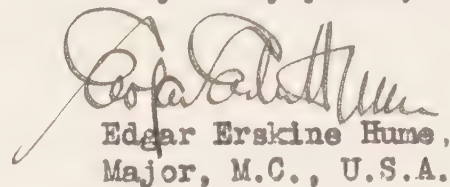 Edgar Erskine Hume,
Major, M.C., U.S.A.